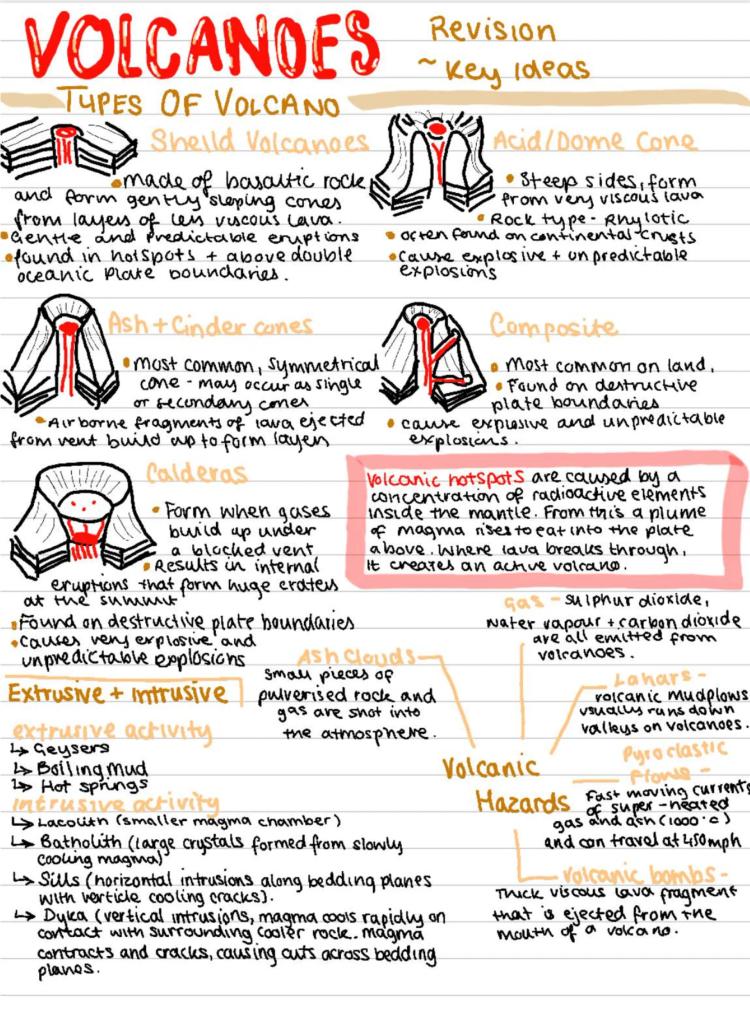 VOLCANOES
Revision
~ Key Ideas
TYPES OF VOLCANO
Sheild Volcanoes
• Made of basaltic rock
and form gently sloping cones
from layers of less viscous lava.
• Gentle and predictable eruptions
• found in hotspots + above double
oceanic plate boundaries.
Acid/Dome Cone
• Steep sides, form
from very viscous lava
• Rock type - Rhylotic
• often found on continental crusts
• cause explosive + unpredictable
explosions
Ash + Cinder cones
• Most common, symmetrical
cone - may occur as single
or secondary cones
• Airborne fragments of lava ejected
from vent build up to form layers
Composite
• Most common on land,
• Found on destructive
plate boundaries
• cause explosive and unpredictable
explosions.
Calderas
• Form when gases
build up under
a blocked vent
• Results in internal
eruptions that form huge craters
at the summit
• Found on destructive plate boundaries
• Causes very explosive and
unpredictable explosions
Volcanic hotspots are caused by a
concentration of radioactive elements
inside the mantle. From this a plume
of magma rises to eat into the plate
above. Where lava breaks through,
it creates an active volcano.
Extrusive + Intrusive
extrusive activity
↳ Geysers
↳ Boiling Mud
↳ Hot springs
Intrusive activity
↳ Lacolith (smaller magma chamber)
↳ Batholith (large crystals formed from slowly
cooling magma)
↳ Sills (horizontal intrusions along bedding planes
with verticle cooling cracks).
↳ Dyka (vertical intrusions, magma cools rapidly on
contact with surrounding cooler rock. magma
contracts and cracks, causing cuts across bedding
planes.
Volcanic
Hazards
Ash Clouds -
small pieces of
pulverised rock and
gas are shot into
the atmosphere.
Gas - sulphur dioxide,
water vapour + carbon dioxide
are all emitted from
volcanoes.
Lahars -
volcanic mudflows
usually runs down
valleys on volcanoes.
Pyroclastic
Flows -
Fast moving currents
of super-heated
gas and ash (1000°C)
and can travel at 450mph
Volcanic bombs -
Thick viscous lava fragment
that is ejected from the
mouth of a volcano.